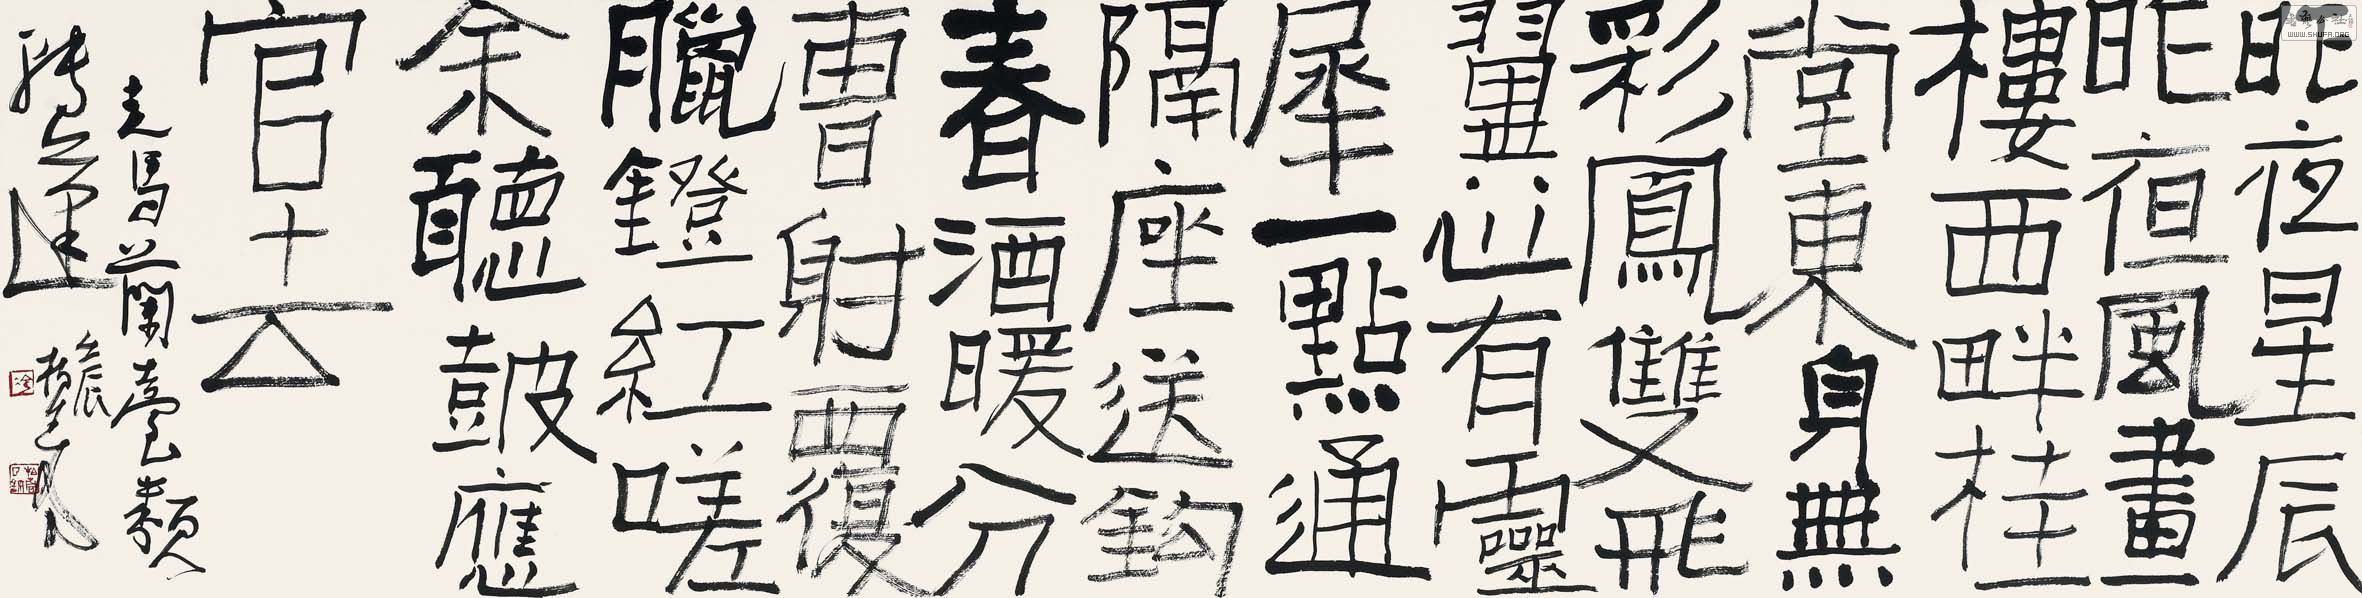 昨夜星辰
昨夜風畫
樓西畔桂
堂東身無
彩鳳雙飛
翼心有靈
犀一點通
隔座送鈎
春酒暖分
曹射覆
臘鐙紅嗟
余聽鼓應
官去
走馬蘭臺類
轉蓬
壬辰
WWW.SHUFA.ORG